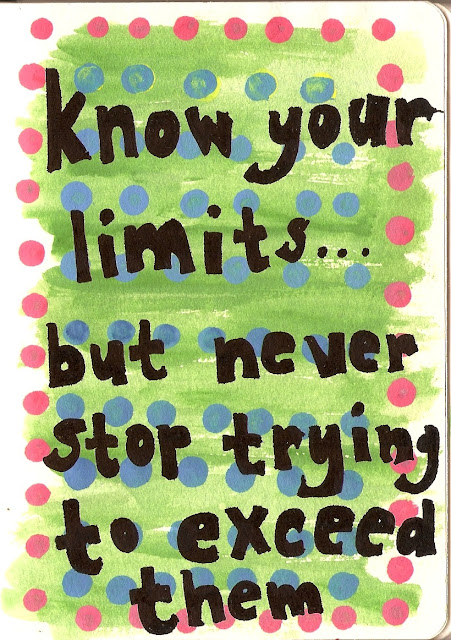 know your
limits...
but never
stop trying
to exceed
them